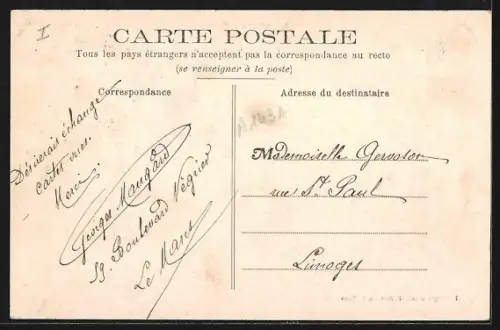 I
CARTE POSTALE
Tous les pays étrangers n'acceptent pas la correspondance au recto
(se renseigner à la poste)
Correspondance
Désirerais échange
cartes vues.
Merci.
Georges Maugard
59 Boulevard Négrier
Le Mans
Adresse du destinataire
Mademoiselle Gervoson
rue St Paul
Limoges